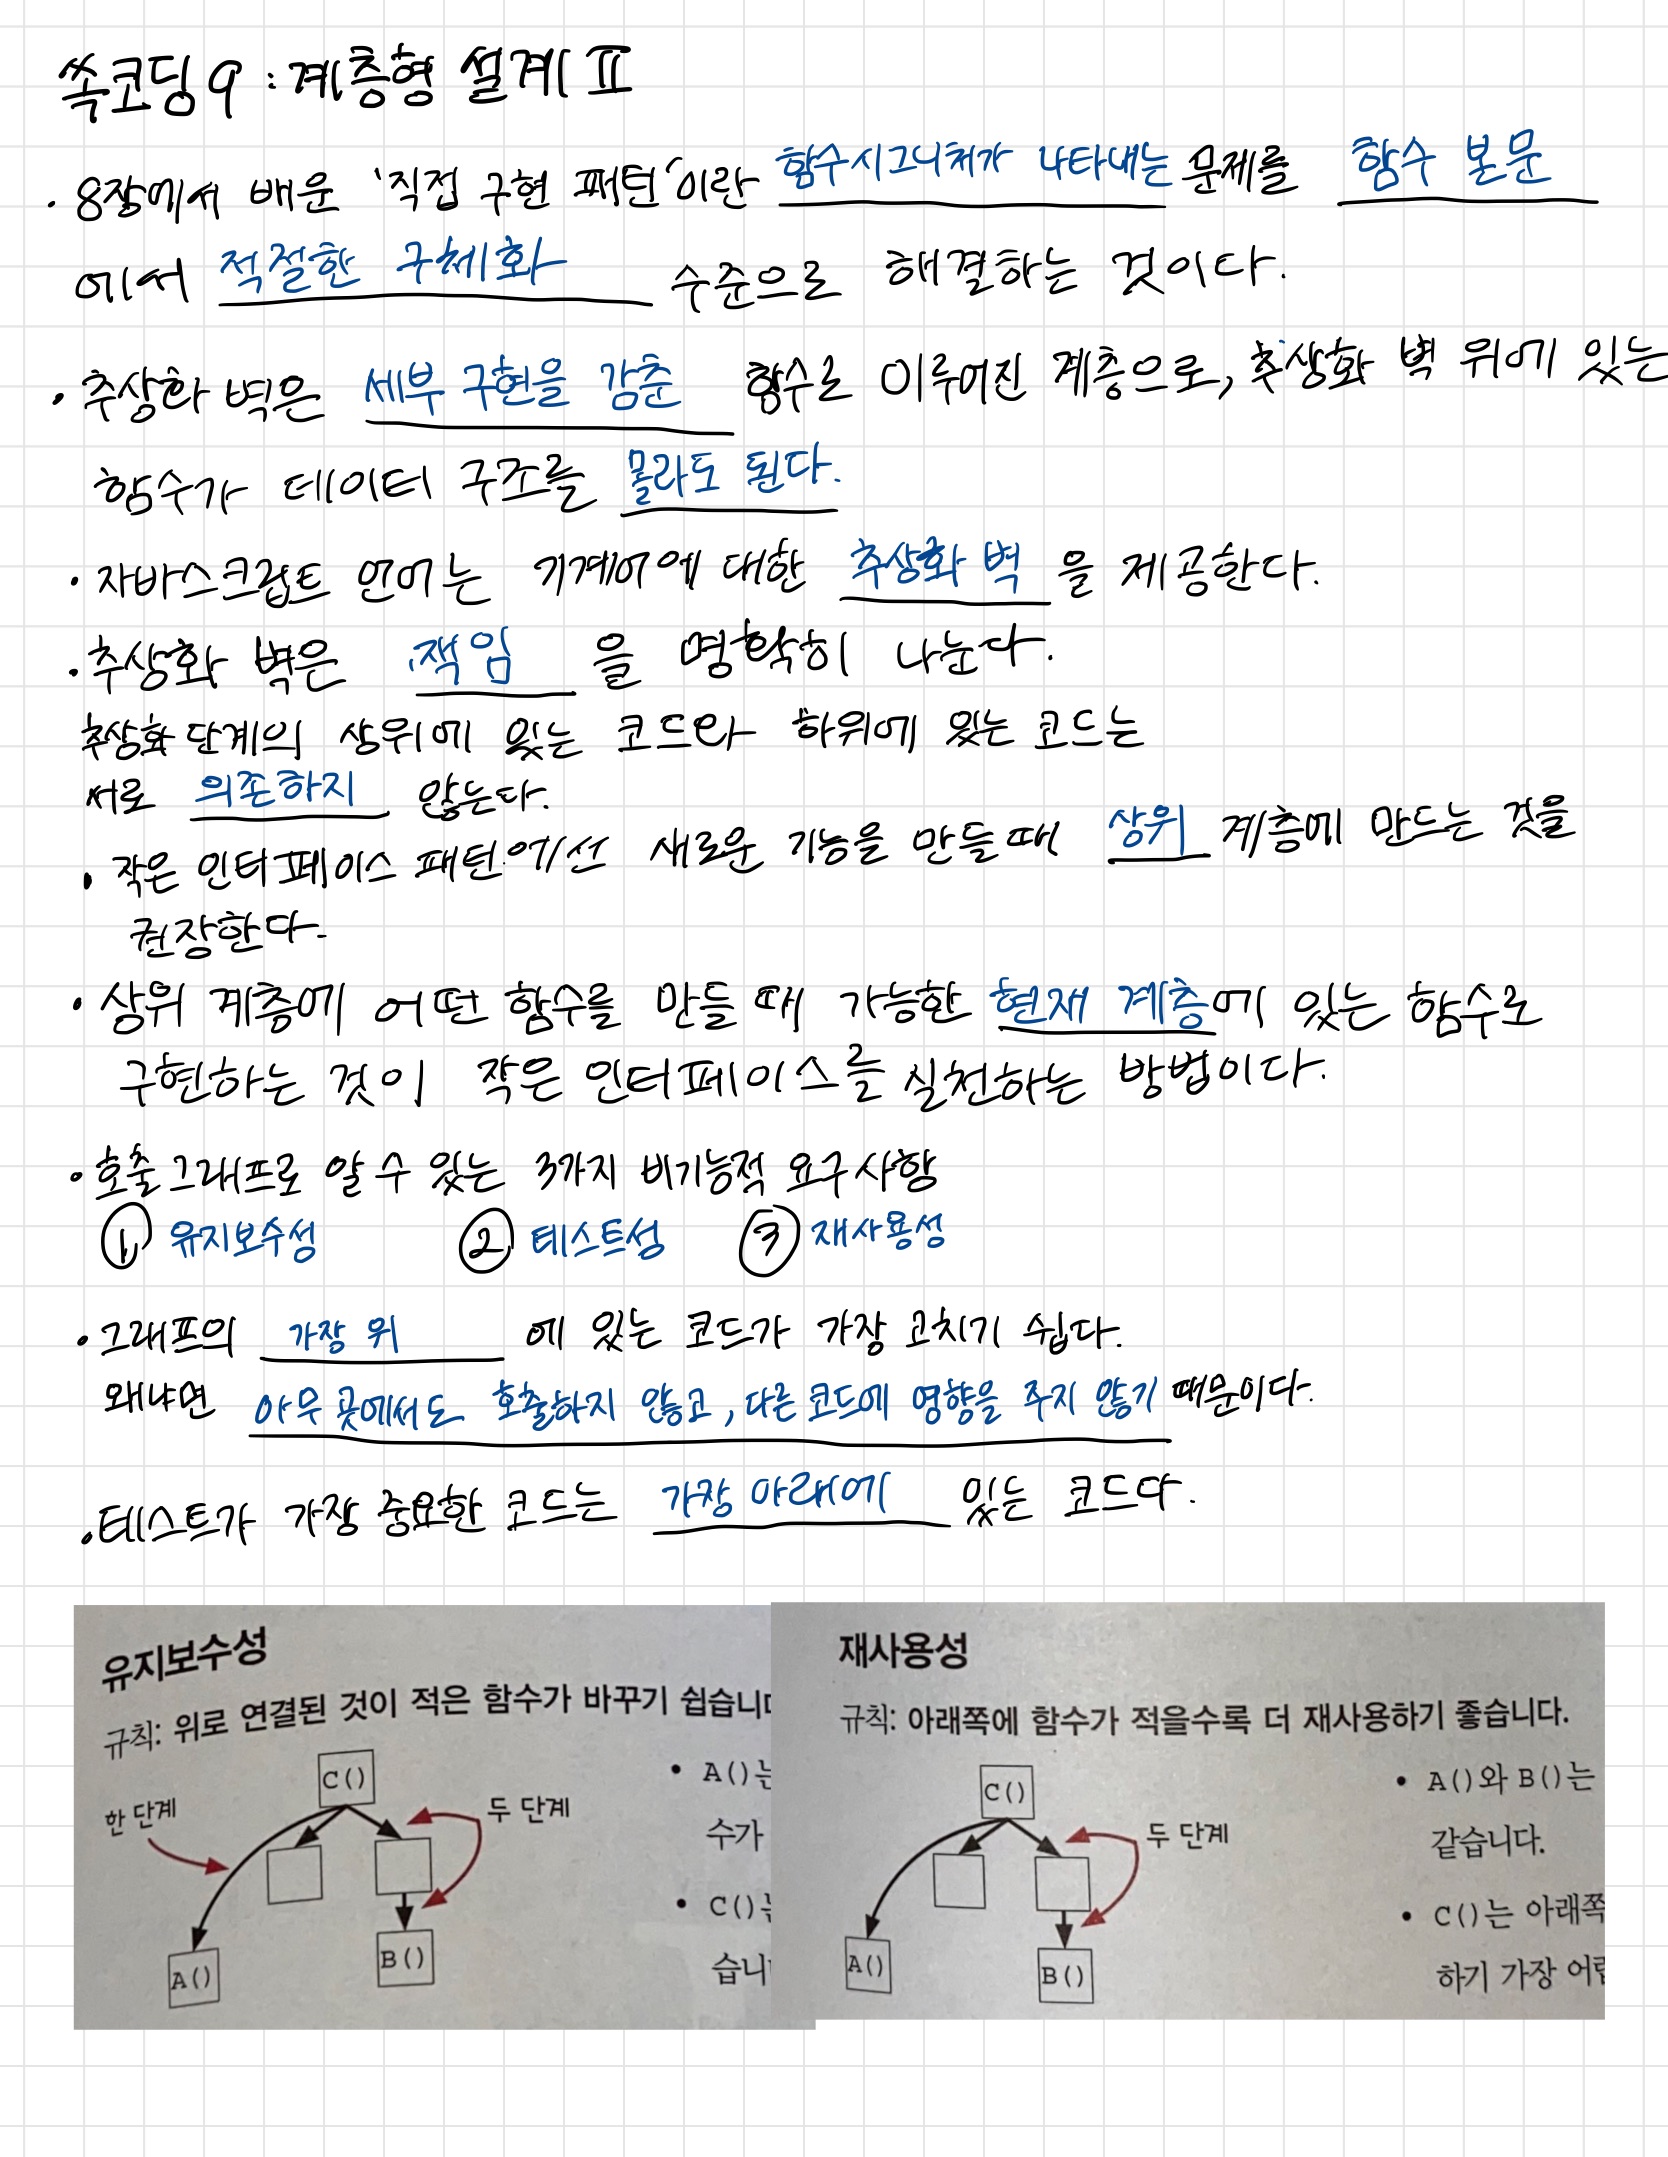 쏙코딩 9 : 계층형 설계 II
· 8장에서 배운 '직접 구현 패턴'이란 함수시그니처가 나타내는 문제를 함수 본문
에서 적절한 구체화 수준으로 해결하는 것이다.
· 추상화 벽은 세부 구현을 감춘 함수로 이루어진 계층으로, 추상화 벽 위에 있는
함수가 데이터 구조를 몰라도 된다.
· 자바스크립트 언어는 기계어에 대한 추상화 벽 을 제공한다.
· 추상화 벽은 책임 을 명확히 나눈다.
추상화 단계의 상위에 있는 코드와 하위에 있는 코드는
서로 의존하지 않는다.
· 작은 인터페이스 패턴에선 새로운 기능을 만들 때 상위 계층에 만드는 것을
권장한다.
· 상위 계층에 어떤 함수를 만들 때 가능한 현재 계층에 있는 함수로
구현하는 것이 작은 인터페이스를 실천하는 방법이다.
· 호출 그래프로 알 수 있는 3가지 비기능적 요구사항
① 유지보수성 ② 테스트성 ③ 재사용성
· 그래프의 가장 위 에 있는 코드가 가장 고치기 쉽다.
왜냐면 아무 곳에서도 호출하지 않고, 다른 코드에 영향을 주지 않기 때문이다.
· 테스트가 가장 중요한 코드는 가장 아래에 있는 코드다.
유지보수성
규칙: 위로 연결된 것이 적은 함수가 바꾸기 쉽습니다
C()
한 단계
두 단계
A()
B()
• A()는
수가
• C()는
습니
재사용성
규칙: 아래쪽에 함수가 적을수록 더 재사용하기 좋습니다.
C()
두 단계
A()
B()
• A()와 B()는
같습니다.
• C()는 아래쪽
하기 가장 어렵